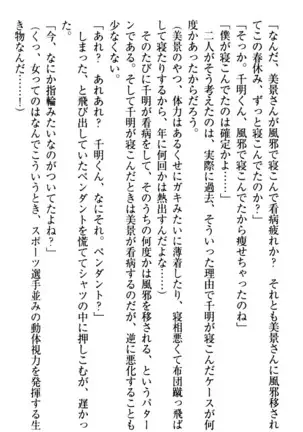 「なんだ、美景さんが風邪で寝こんで看病疲れか？　それとも美景さんに風邪移され
てこの春休み、ずっと寝こんでたのか？」
「そっか。千明くん、風邪で寝こんでたから痩せちゃったのね」
「僕が寝こんでたのは確定かよ…」
　二人がそう考えたのは、実際に過去、そういった理由で千明が寝こんだケースが何
度かあったからだろう。
（美景のやつ、体力はあるくせにガキみたいに薄着したり、寝相悪くて布団蹴っ飛ば
して寝たりするから、年に何回かは熱出すんだよな…）
　そのたびに千明が看病をして、そのうちの何度かは風邪を移される、というパター
ンである。そして千明が寝こんだときは美景が看病するのだが、逆に悪化することも
少なくない。
「あれ？　あれあれ？　千明くん、なにそれ。ペンダント？」
　しまった、と飛び出していたペンダントを慌ててシャツの中に押しこむが、遅かっ
た。
「今、なにか指輪みたいなのがついてたよね？」
（くっ、女ってのはなんでこういうとき、スポーツ選手並みの動体視力を発揮する生
き物なんだ……！）